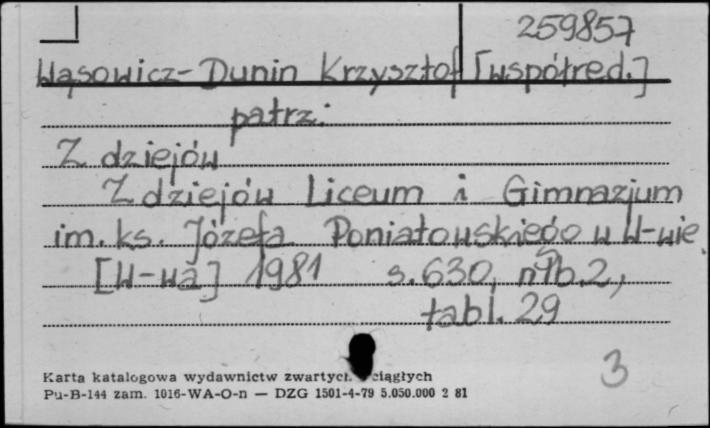 259857
Wąsowicz-Dunin Krzysztof [współred.]
patrz:
Z dziejów
Z dziejów Liceum i Gimnazjum
im. ks. Józefa Poniatowskiego w W-wie.
[W-wa] 1981 s. 630, nlb. 2,
tabl. 29
3
Karta katalogowa wydawnictw zwartych ciągłych
Pu-B-144 zam. 1016-WA-O-n — DZG 1501-4-79 5.050.000 2 81